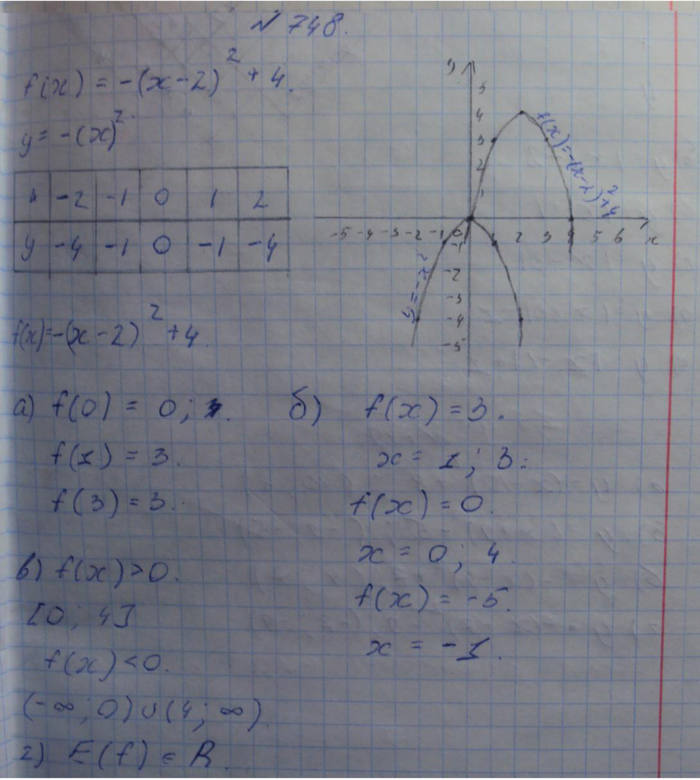 № 748.
f(x) = -(x-2)² + 4.
y = -(x)²
x -2 -1 0 1 2
y -4 -1 0 -1 -4
f(x)=-(x-2)² +4.
y
5
4
3
2
1
-5 -4 -3 -2 -1 0 1 2 3 4 5 6 x
-1
-2
-3
-4
-5
f(x)=-(x-2)²+4
y=-x²
а) f(0) = 0;
f(1) = 3.
f(3) = 3.
б) f(x) = 3.
x = 1; 3.
f(x) = 0.
x = 0; 4.
f(x) = -5.
x = -1.
в) f(x) > 0.
[0; 4]
f(x) < 0.
(-∞; 0) ∪ (4; ∞)
г) E(f) ∈ R.